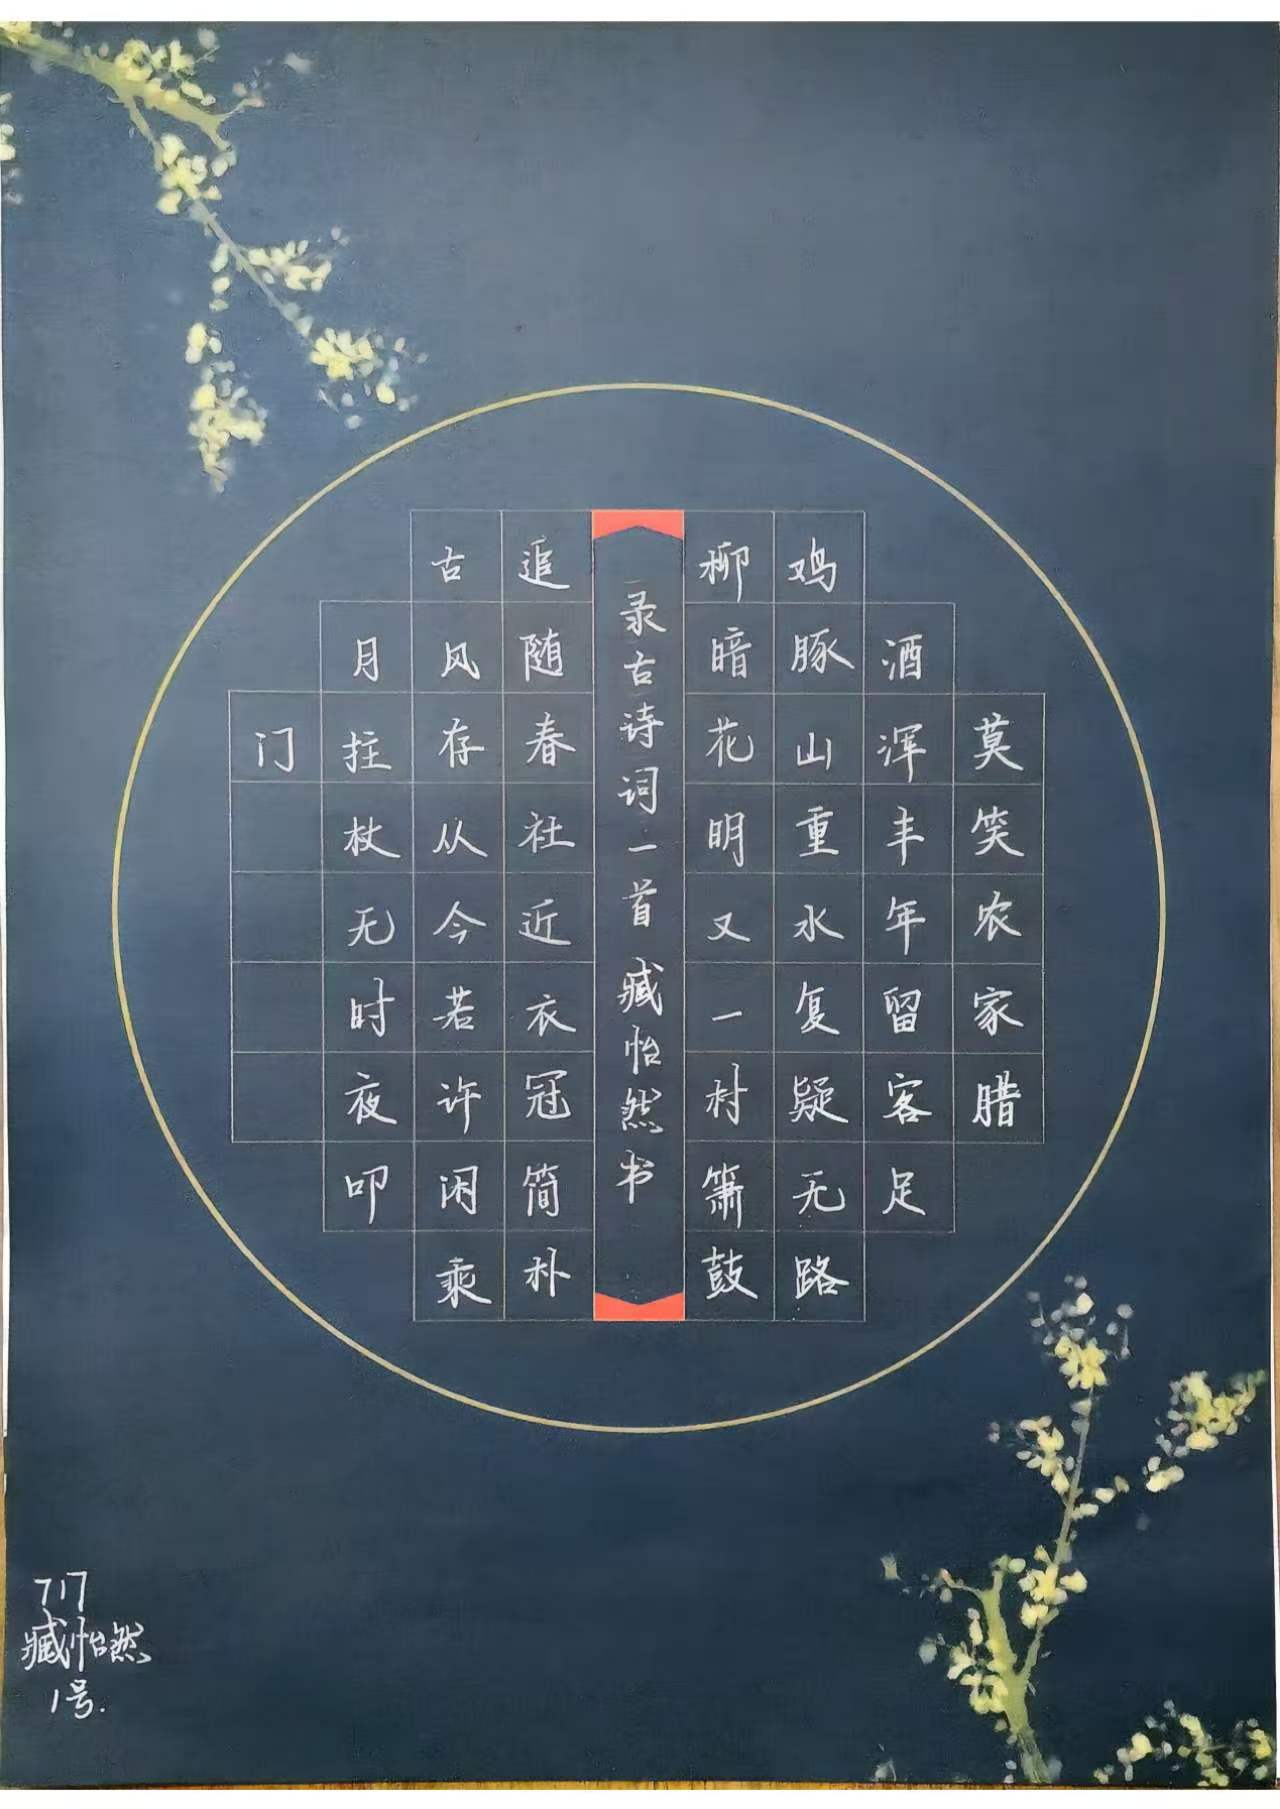 莫笑农家腊
酒浑丰年留客足
鸡豚山重水复疑无路
柳暗花明又一村箫鼓
录古诗词一首 臧怡然书
追随春社近衣冠简朴
古风存从今若许闲乘
月拄杖无时夜叩
门
717
臧怡然
1号.